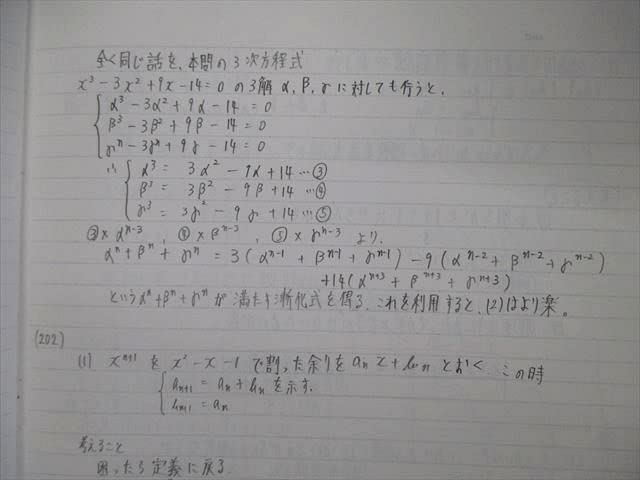 全く同じ話を、本問の3次方程式
x³-3x²+9x-14=0 の3解 α, β, γ に対しても行うと、
α³-3α²+9α-14=0
β³-3β²+9β-14=0
γⁿ-3γⁿ+9γ-14=0
∴ α³= 3α²-9α+14 … ③
β³= 3β²-9β+14 … ④
γ³= 3γ²-9γ+14 … ⑤
③×αⁿ⁻³, ④×βⁿ⁻³, ⑤×γⁿ⁻³ より、
αⁿ+βⁿ+γⁿ = 3(αⁿ⁻¹+βⁿ⁻¹+γⁿ⁻¹)-9(αⁿ⁻²+βⁿ⁻²+γⁿ⁻²)
+14(αⁿ⁺³+βⁿ⁺³+γⁿ⁺³)
というαⁿ+βⁿ+γⁿが満たす漸化式を得る。これを利用すると、(2)はより楽。
(202)
(1) xⁿ⁺¹ を x²-x-1 で割った余りを aₙx+bₙ とおく この時
aₙ₊₁ = aₙ+bₙ を示す.
bₙ₊₁ = aₙ
考えること
困ったら定義に戻る